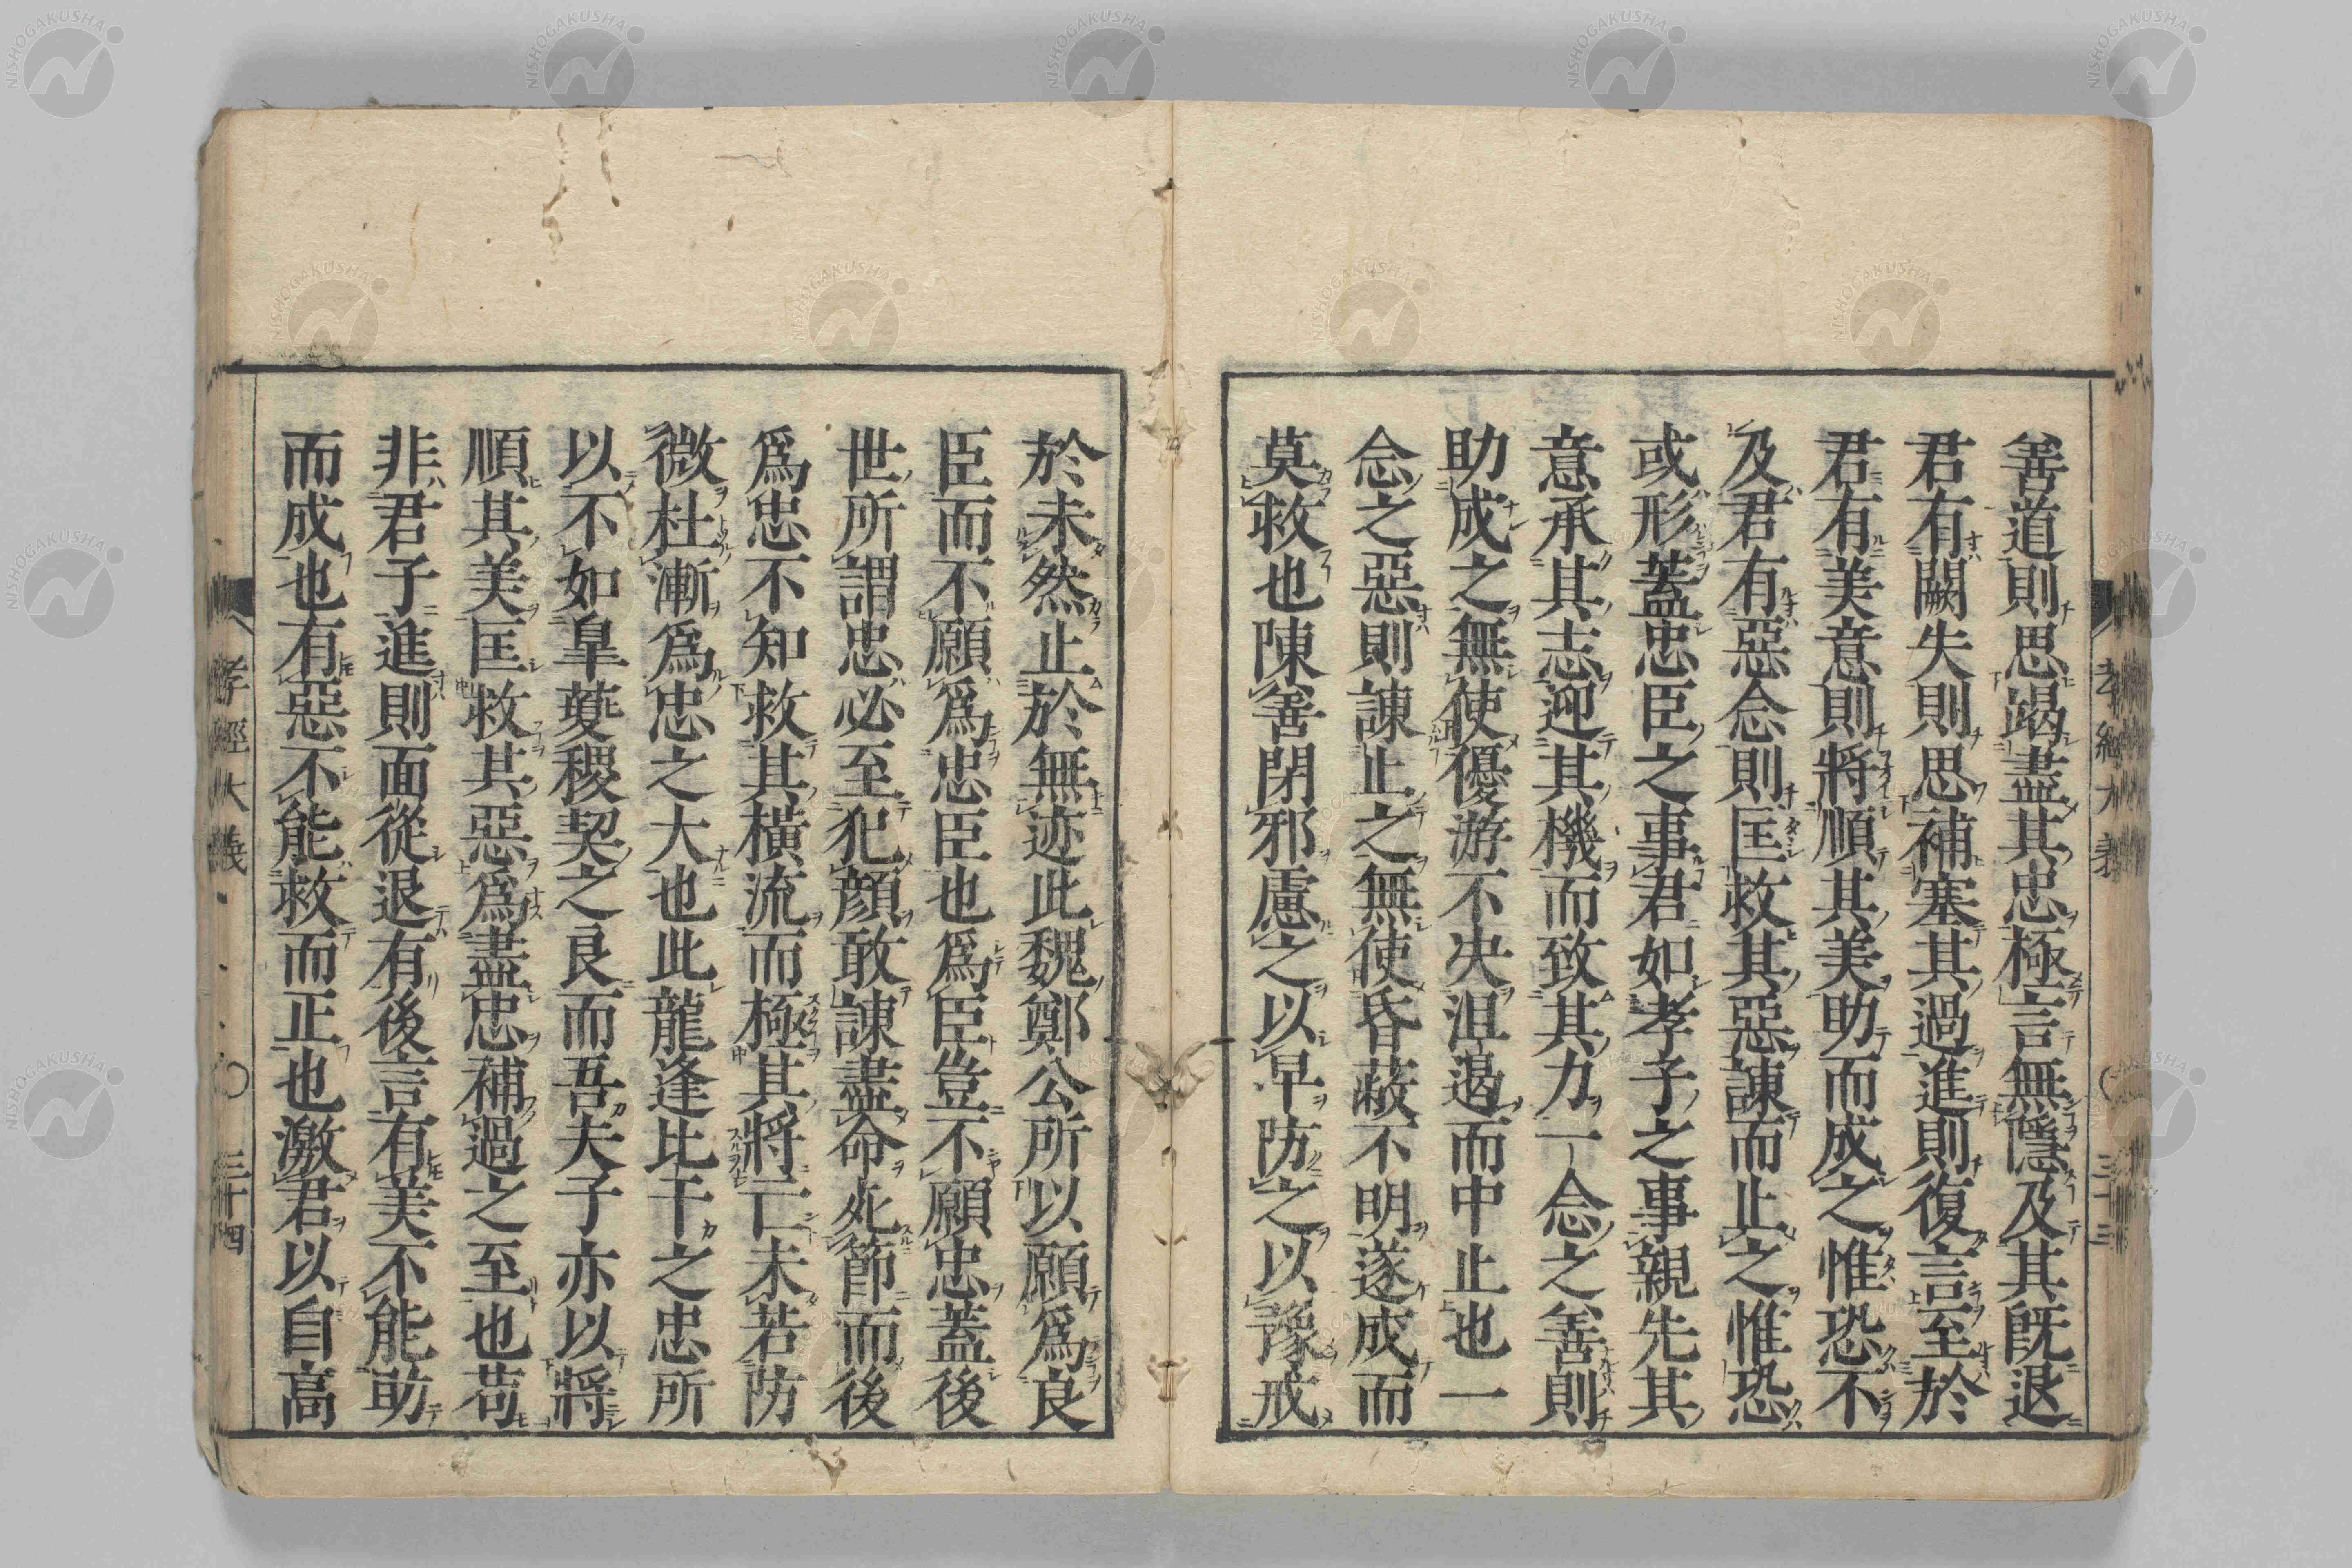 善道則思竭盡其忠極言無隱及其既退
君有闕失則思補塞其過進則復言至於
君有美意則將順其美助而成之惟恐不
及君有惡念則匡救其惡諫而止之惟恐
或形蓋忠臣之事君如孝子之事親先其
意承其志迎其機而致其力一念之善則
助成之無使優游不决沮遏而中止也一
念之惡則諫止之無使昏蔽不明遂成而
莫救也陳善閉邪慮之以早防之以豫戒
於未然止於無迹此魏鄭公所以願爲良
臣而不願爲忠臣也爲臣豈不願忠蓋後
世所謂忠必至犯顔敢諫盡命死節而後
爲忠不知救其橫流而極其將亡未若防
微杜漸爲忠之大也此龍逢比干之忠所
以不如皐夔稷契之良而吾夫子亦以將
順其美匡救其惡爲盡忠補過之至也苟
非君子進則面從退有後言有美不能助
而成也有惡不能救而正也激君以自高
孝經大義 三十四
孝經大義 三十三
NISHOGAKUSHA